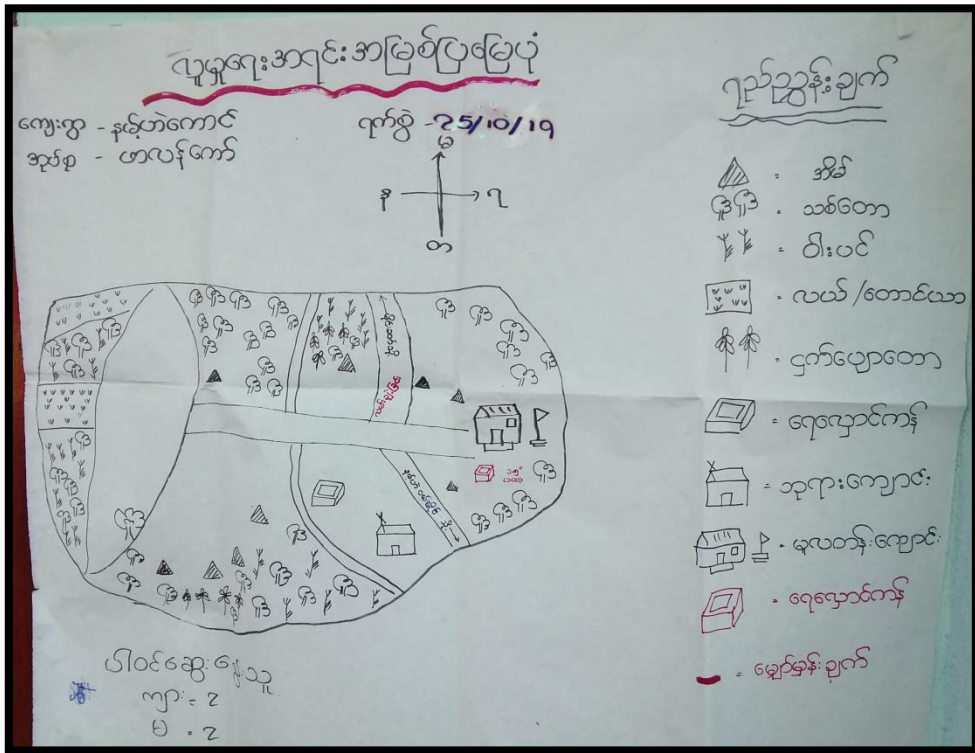 လူမှုရေးအရင်းအမြစ်ပြမြေပုံ
ကျေးရွာ - နမ့်ဟဲကောင်
အုပ်စု - ဟာလန်ကော်
ရက်စွဲ - ၂5/10/19
မ
န
ရ
တ
၁၅'
(၁၀၀)
ပါဝင်ဆွေးနွေးသူ
ကျား = ၇
မ = ၇
ရည်ညွှန်းချက်
= အိမ်
= သစ်တော
ဝါးပင်
= လယ် /တောင်ယာ
= ငှက်ပျောတော
= ရေလှောင်ကန်
= ဘုရားကျောင်း
= မူလတန်းကျောင်း
= ရေလှောင်ကန်
= မျှော်မှန်းချက်